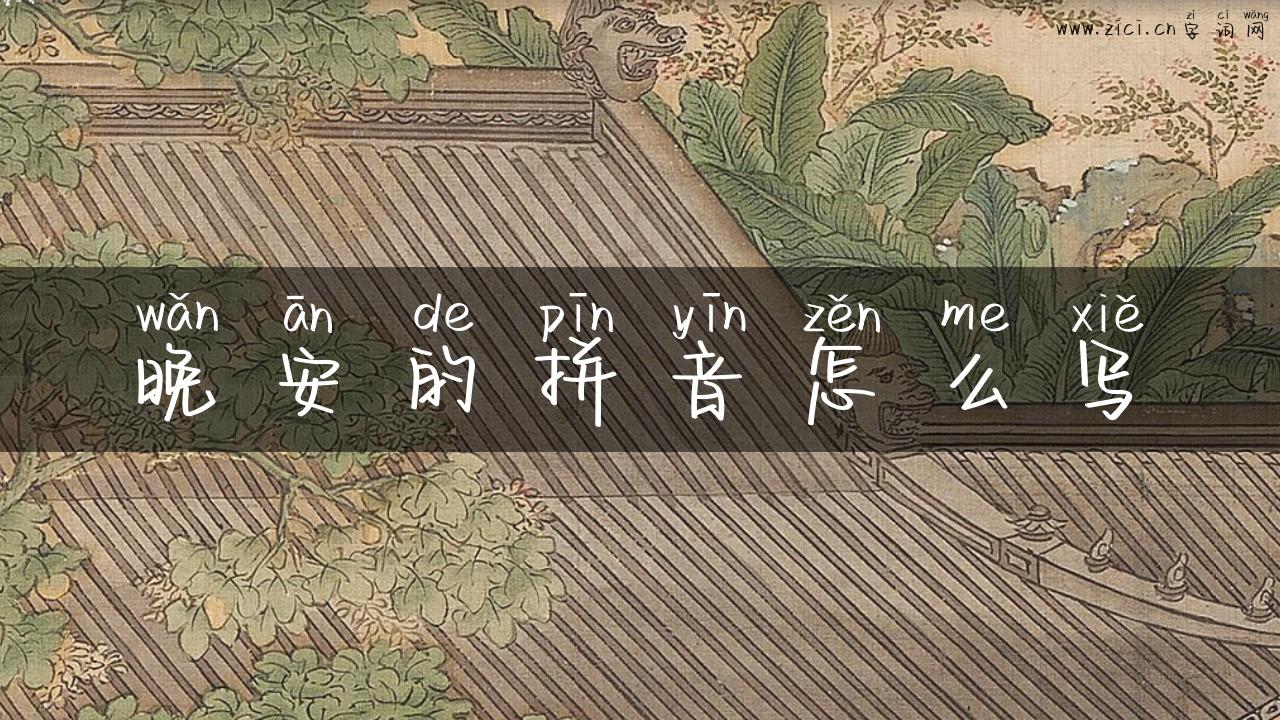 zì cí wǎng
www.zici.cn 字词网
wǎn ān de pīn yīn zěn me xiě
晚安的拼音怎么写